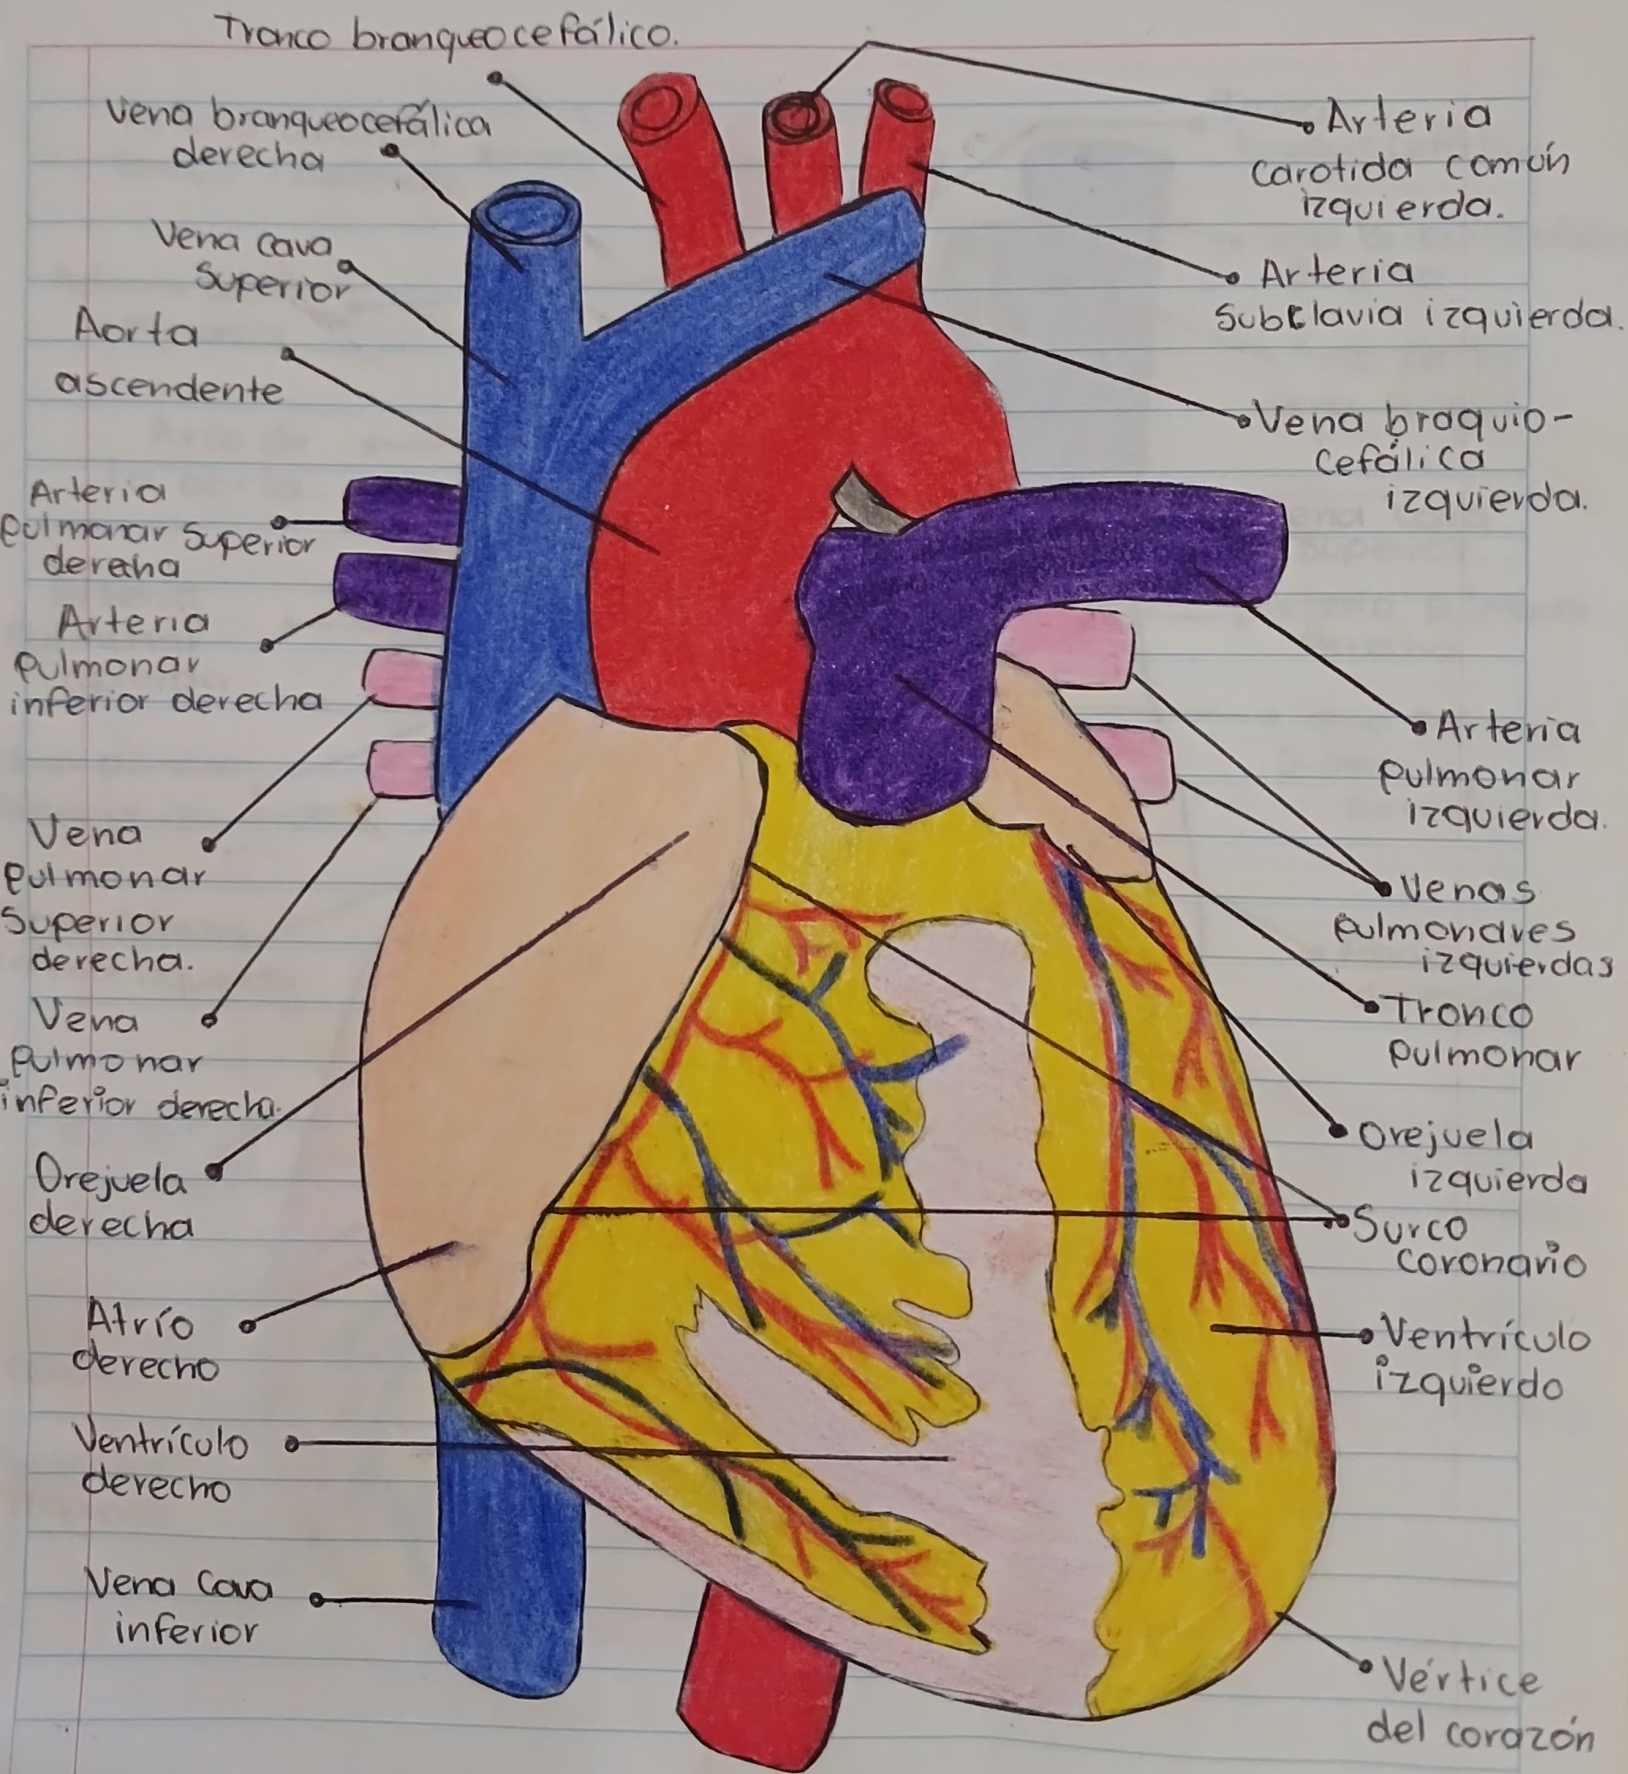 Tronco branqueocefálico.
Vena branqueocefálica
derecha
Vena cava
Superior
Aorta
ascendente
Arteria
pulmonar Superior
derecha
Arteria
pulmonar
inferior derecha
Vena
pulmonar
Superior
derecha.
Vena
pulmonar
inferior derecha.
Orejuela
derecha
Atrío
derecho
Ventrículo
derecho
Vena Cava
inferior
Arteria
carotida común
izquierda.
Arteria
Subclavia izquierda.
Vena braquio-
cefálica
izquierda.
Arteria
pulmonar
izquierda.
Venas
pulmonares
izquierdas
Tronco
pulmonar
Orejuela
izquierda
Surco
coronario
Ventrículo
izquierdo
Vértice
del corazón